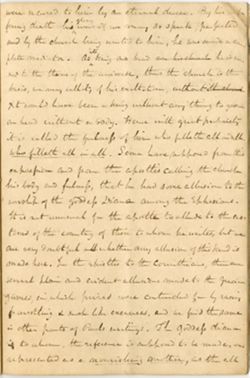 were secured to him by an eternal decree. By his
death his was, so to speak, perfected
and by the church being united to him, he was made a com
plete mediator. As being our head an
to the throne of the universe, thus the church is the
of his exaltation, without
not could have been a king without any thing to govern
an head without a body. Hence with great propriety
it is called the fulness of him who filleth all in all
who filleth all in all. Some have supposed from this
expression and from the apostles calling the church
his body and fulness, that he had some allusion to the
worship of the goddess Diana among the Ephesians.
It is not unusual for the apostle to allude to the cus
toms of the country of those to whom he writes, but we
are very doubtful whether any allusion of this kind is
made here. In the epistles to the Corinthians, there are
several plain and evident allusions made to the Grecian
games in which prizes were contended for by running
wrestling & such like exercises, and we find the same
in other parts of Pauls writings. The goddess diana
to whom, the reference is supposed to be made, was
represented as a nourishing mother, as the all